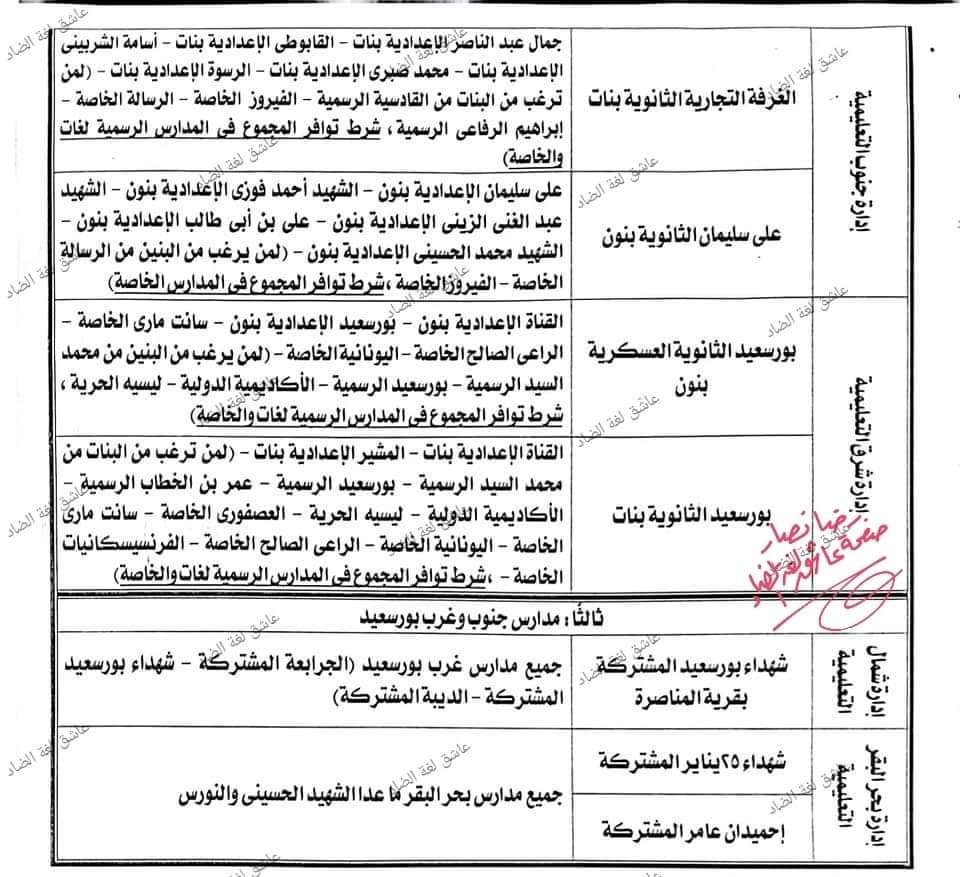 إدارة جنوب التعليمية
الغرفة التجارية الثانوية بنات
جمال عبد الناصر الإعدادية بنات - القابوطى الإعدادية بنات - أسامة الشربينى
الإعدادية بنات - محمد صبرى الإعدادية بنات - الرسوة الإعدادية بنات - (لمن
ترغب من البنات من القادسية الرسمية - الفيروز الخاصة - الرسالة الخاصة -
إبراهيم الرفاعى الرسمية، شرط توافر المجموع فى المدارس الرسمية لغات
والخاصة)
على سليمان الثانوية بنون
على سليمان الإعدادية بنون - الشهيد أحمد فوزى الإعدادية بنون - الشهيد
عبد الغنى الزينى الإعدادية بنون - على بن أبى طالب الإعدادية بنون -
الشهيد محمد الحسينى الإعدادية بنون - (لمن يرغب من البنين من الرسالة
الخاصة - الفيروز الخاصة، شرط توافر المجموع فى المدارس الخاصة)
إدارة شرق التعليمية
بورسعيد الثانوية العسكرية
بنون
القناة الإعدادية بنون - بورسعيد الإعدادية بنون - سانت مارى الخاصة -
الراعى الصالح الخاصة - اليونانية الخاصة - (لمن يرغب من البنين من محمد
السيد الرسمية - بورسعيد الرسمية - الأكاديمية الدولية - ليسيه الحرية،
شرط توافر المجموع فى المدارس الرسمية لغات والخاصة)
بورسعيد الثانوية بنات
القناة الإعدادية بنات - المشير الإعدادية بنات - (لمن ترغب من البنات من
محمد السيد الرسمية - بورسعيد الرسمية - عمر بن الخطاب الرسمية -
الأكاديمية الدولية - ليسيه الحرية - العصفورى الخاصة - سانت مارى
الخاصة - اليونانية الخاصة - الراعى الصالح الخاصة - الفرنسيسكانيات
الخاصة - ، شرط توافر المجموع فى المدارس الرسمية لغات والخاصة)
رضا نصار
صفحة عاشق لغة الضاد
ثالثًا: مدارس جنوب وغرب بورسعيد
إدارة شمال
التعليمية
شهداء بورسعيد المشتركة
بقرية المناصرة
جميع مدارس غرب بورسعيد (الجرابعة المشتركة - شهداء بورسعيد
المشتركة - الديبة المشتركة)
إدارة بحر البقر
التعليمية
شهداء ٢٥ يناير المشتركة
إحميدان عامر المشتركة
جميع مدارس بحر البقر ما عدا الشهيد الحسينى والنورس
عاشق لغة الضاد